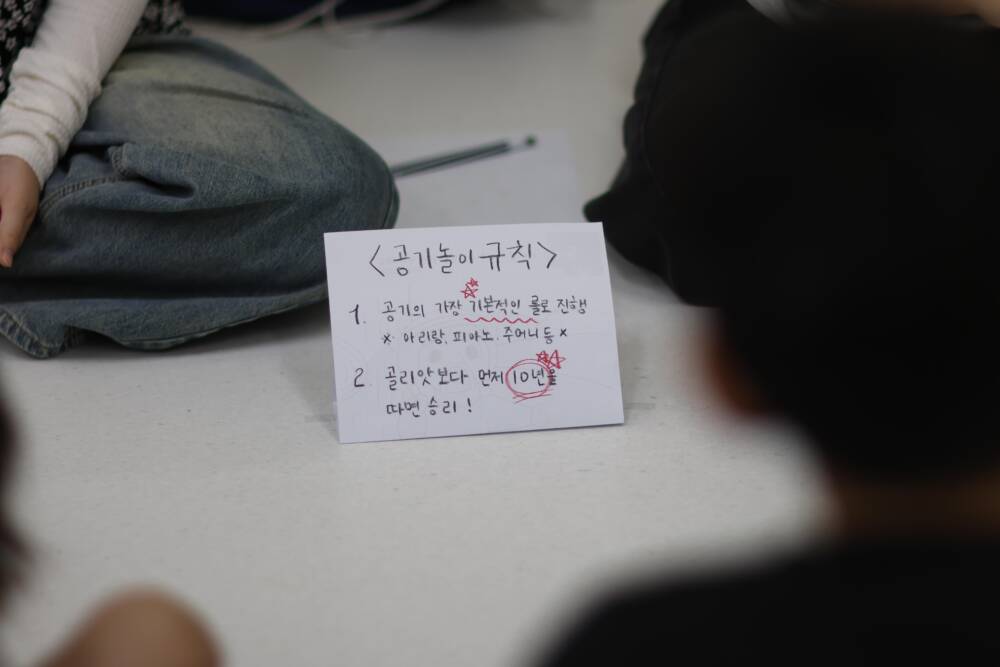 <공기놀이 규칙>
1. 공기의 가장 기본적인 룰로 진행
× 아리랑, 피아노, 주머니 등 ×
2. 골리앗보다 먼저 10년을
따면 승리!